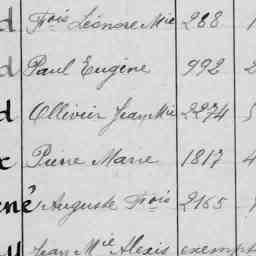 d Fois Léonore Mie 288 1
d Paul Eugène 992 2
d Ollivier Jean Mie 2274
x Pierre Marie 1817 4
ené Auguste Fois 2165
Jean Mie Alexis exempt